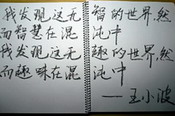 我发现这无智的世界,然
而智慧在混沌中
我发现这无趣的世界,然
而趣味在混沌中
——王小波